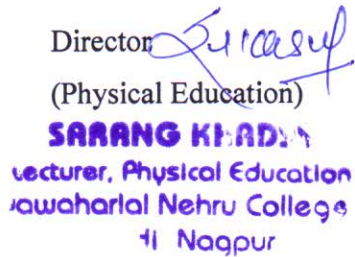 Director
(Physical Education)
SARANG
Lecturer, Physical Education
Jawaharlal Nehru College
Nagpur